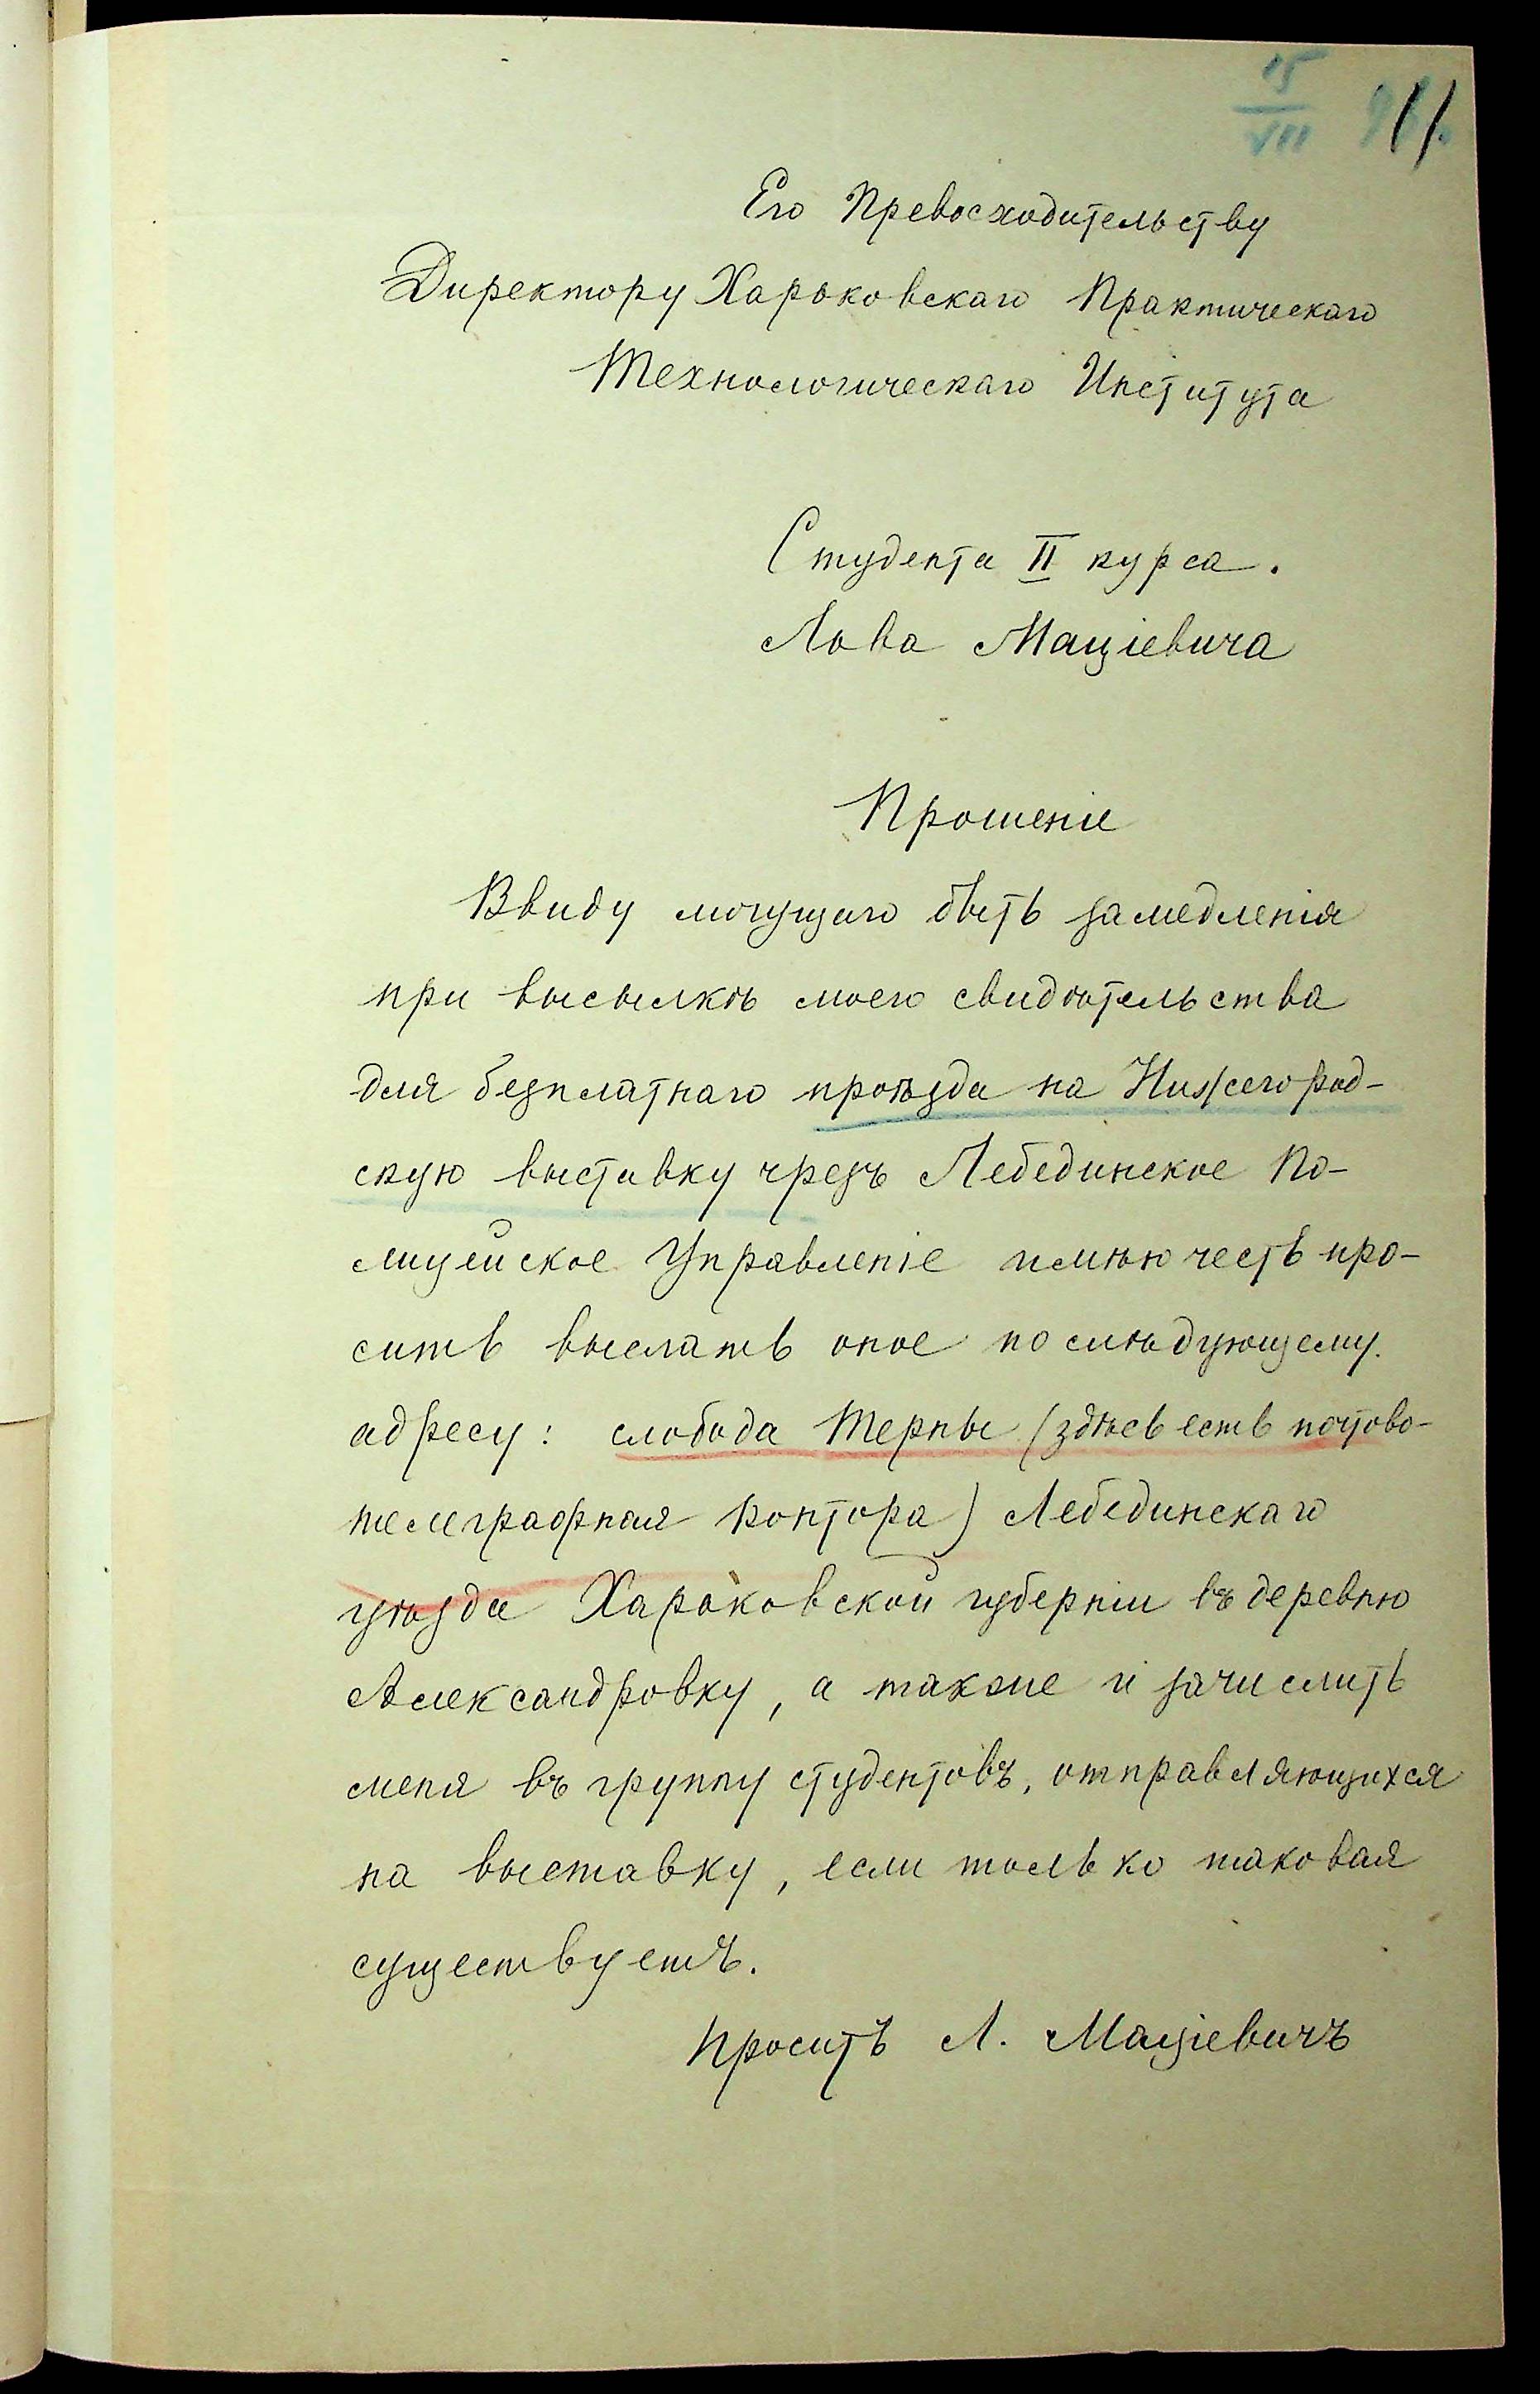 15
VII
11.
Его Превосходительству
Директору Харьковскаго Практическаго
Технологическаго Института
Студента II курса.
Льва Мацiевича
Прошенiе
Ввиду могущаго быть замедленiя
при высылкѣ моего свидѣтельства
для безплатнаго проѣзда на Нижегород-
скую выставку чрезъ Лебединское По-
лицейское Управленiе имѣю честь про-
сить выслать оное по слѣдующему
адресу: слобода Терны (здѣсь есть почтово-
телеграфная контора) Лебединскаго
уѣзда Харьковской губернiи въ деревню
Александровку, а также и зачислить
меня въ группу студентовъ, отправляющихся
на выставку, если только таковая
существуетъ.
Проситъ Л. Мацiевичъ